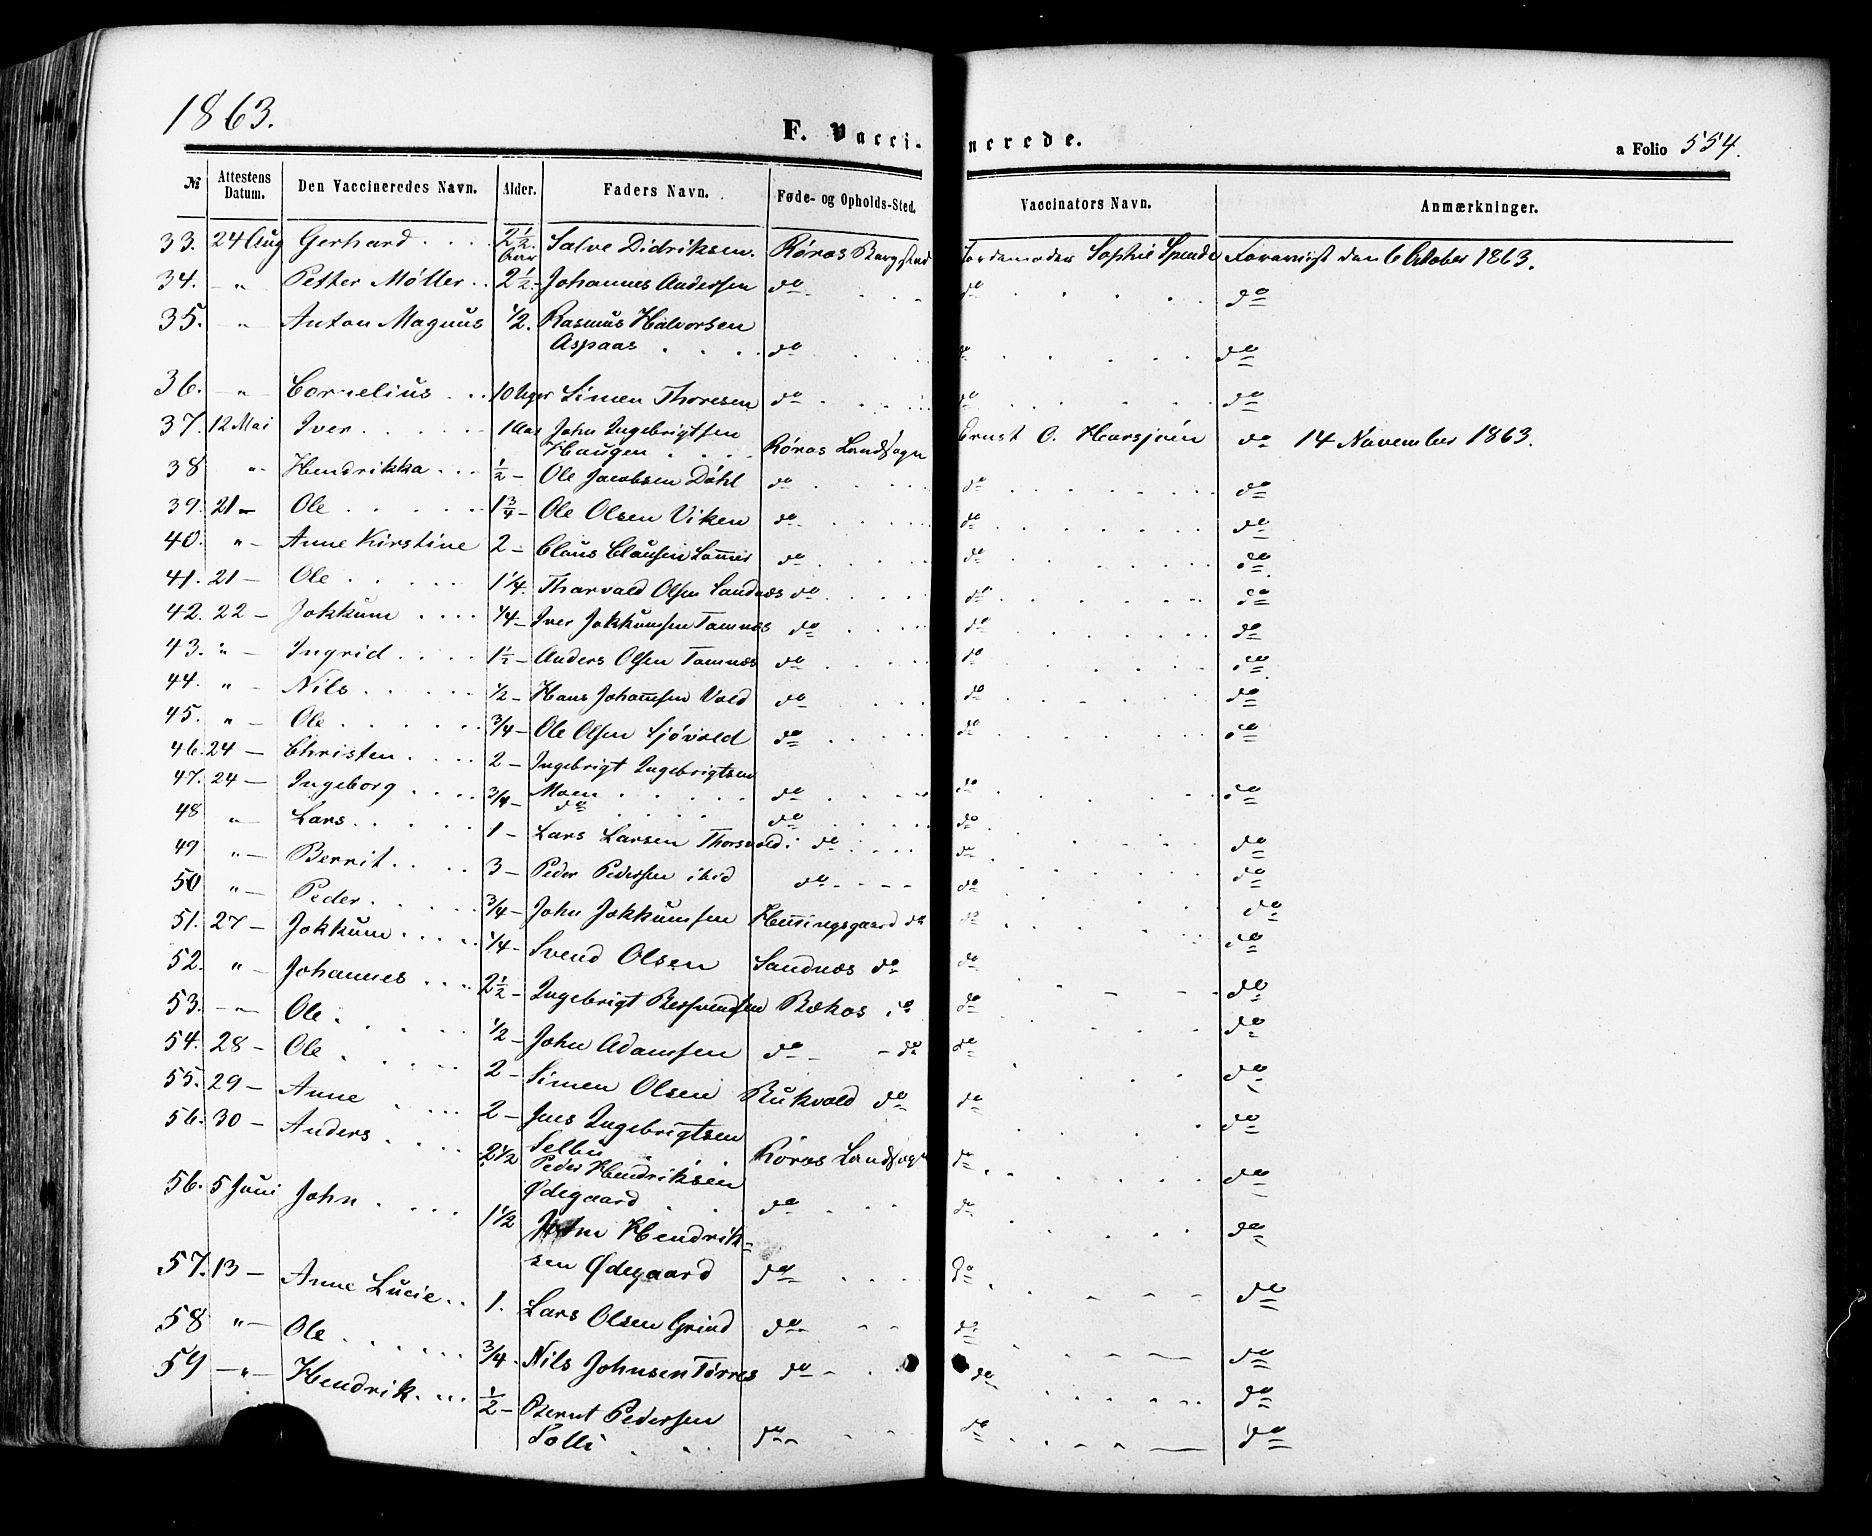 1863.
F. Vaccinerede.
a Folio 554.
№ Attestens Datum. Den Vaccineredes Navn. Alder. Faders Navn. Føde- og Opholds-Sted. Vaccinators Navn. Anmærkninger.
33. 24 Aug Gerhard 2½ Aar Salve Didriksen. Røros Bergstad Jordemoder Sophie Foreviist den 6 Oktober 1863.
34. " Petter Møller 2½ - Johannes Andersen do do do
35. " Anton Magnus ½. Rasmus Halvorsen
Aspaas do do do
36. " Cornelius 10 Uger Simen Thoresen do do do
37. 12 Mai Iver 1 Aar John Ingebrigtsen
Haugen Røros Landsogn Ernst O. Harsjøen do 14 November 1863.
38 " Hendrikka ½ - Ole Jacobsen Dahl do do do
39. 21 - Ole 1¾ - Ole Olsen Viken do do do
40. " - Anne Kirstine 2 - Claus Clausen do do do
41. 21 - Ole 1¼. Thorvald Olsen Sandnæs do do do
42. 22 - Jokkum ¼ - Iver Jokkumsen Tamnæs do do do
43. " - Ingrid 1½ - Anders Olsen Tamnæs do do do
44. " - Nils ½ - Hans Johannsen Vold do do do
45. " - Ole ¾ - Ole Olsen Sjøvold do do do
46. 24 - Christen 2 - Ingebrigt Ingebrigtsen
Moen do do do
47. 24 - Ingeborg ¾ - do do do
48 " - Lars 1 - Lars Larsen Thorsvold do do do
49 " - Berrit 3 - Peder Pedersen ibid do do do
50 " - Peder ¾ - John Jokkumsen Henningsgaard do do do
51. 27 - Jokkum ¼ - Svend Olsen Sandnæs do do do
52. " - Johannes 2½ - Ingebrigt Bersvendsen Bækos do do do
53. " - Ole ½ - John Adamsen do - do do do
54. 28 - Ole 2 - Simen Olsen Bukvold do do do
55. 29 - Anne 2 - Jens Ingebrigtsen
Selbu Røros Landsogn do do
56. 30 - Anders 2½ Peder Hendriksen
Ødegaard do do do
56. 5 Juni John 1½ John Hendrik-
sen Ødegaard do do do
57. 13 - Anne Lucie 1. Lars Olsen Grind do do do
58 " - Ole ¾. Nils Johnsen Torres do do do
59 - " - Hendrik ½ - Bernt Pedersen
Solli do do do